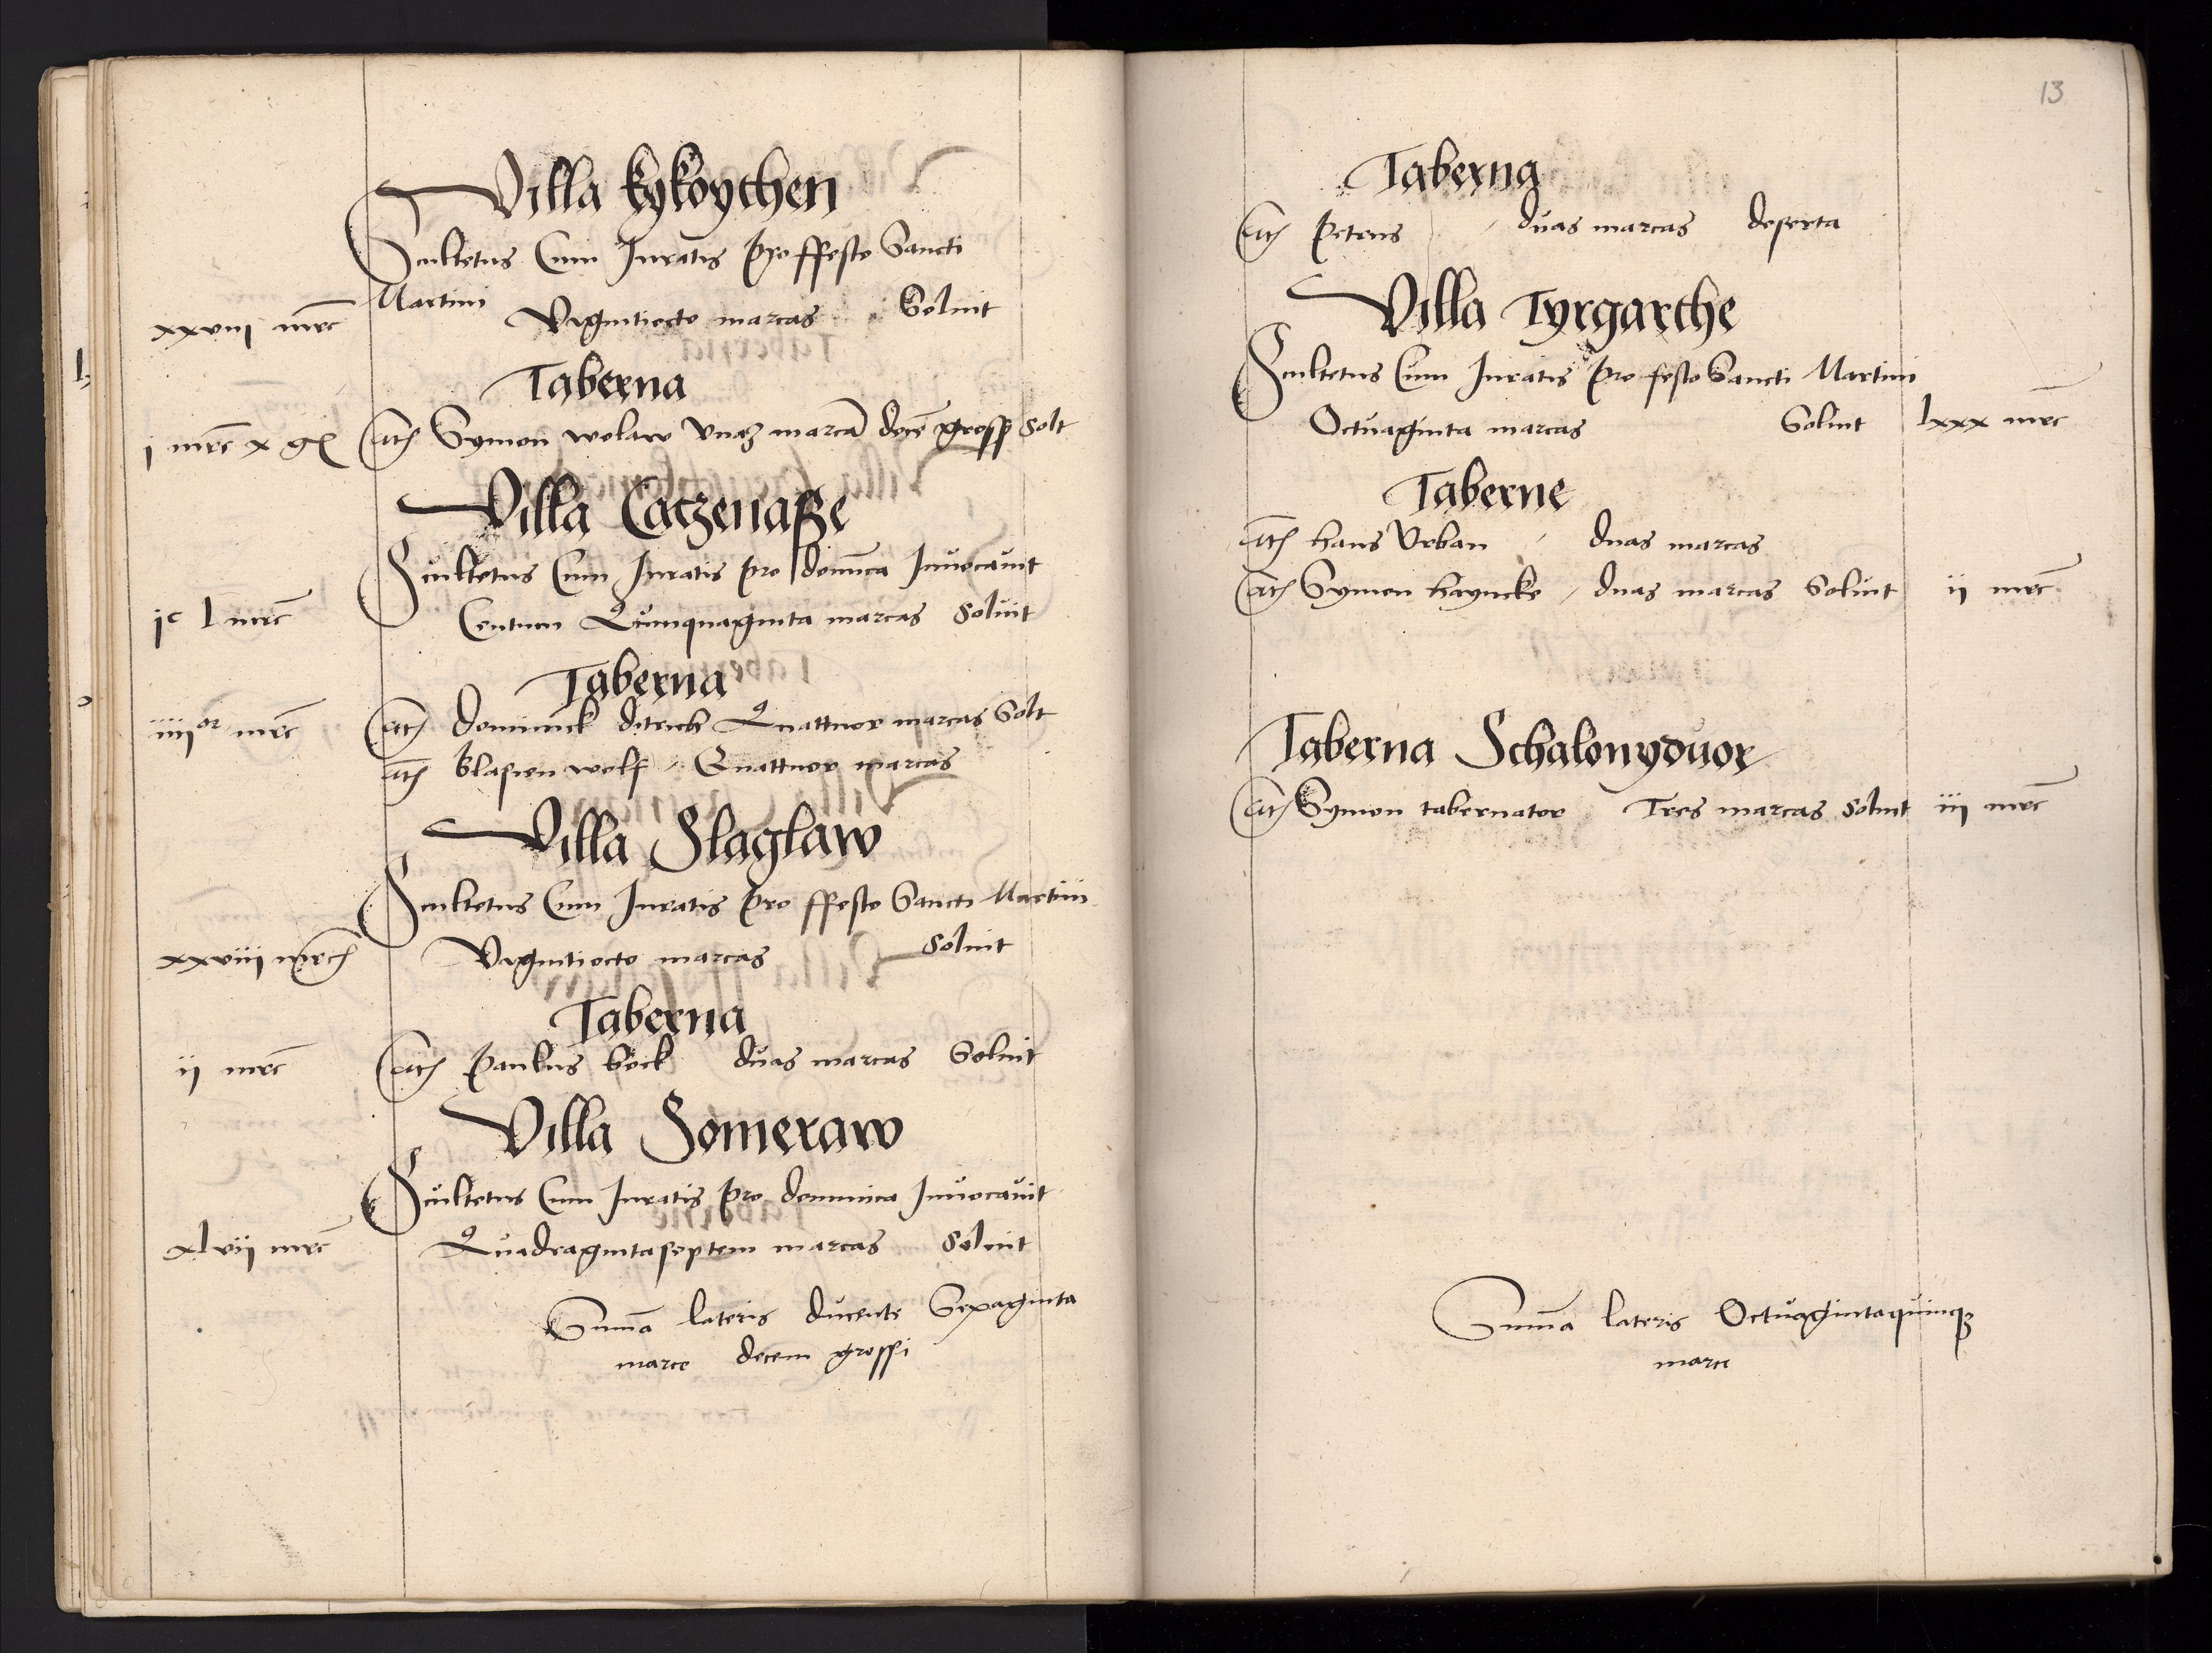 Villa kykoythen
Scultetus Cum Juratis Pro ffesto Sancti
Martini Vigintiocto marcas Soluit
xxviii mrc
Taberna
Symon wolaw Vnaz marca dece gross Solt
i mrc x g
Villa Catzenaße
Scultetus Cum Juratis pro donuca Jnuocauit
Centum Quinquaginta marcas Soluit
jc l mrc
Taberna
dominick ditrich Quattuor marcas Solt
iiiior mrc
blasien wolf Quattuor marcas
Villa Slaglaw
Scultetus Cum Juratis Pro ffesto Sancti Martini
Vigintiocto marcas Soluit
xxviii mrc
Taberna
Paulus böck duas marcas Soluit
ii mrc
Villa Someraw
Scultetus Cum Juratis Pro dominica Jnuocauit
Quadragintaseptem marcas Soluit
xlvii mrc
Suma lateris ducente Sexaginta
marce decem grossi
13
Taberna
Peters duas marcas deserta
Villa Tyrgarthe
Scultetus Cum Juratis Pro festo Sancti Martini
Octuaginta marcas Soluit lxxx mrc
Taberne
hans Vrban duas marcas
Symon hayncke duas marcas Soluit ii mrc
Taberna Schalonyduor
Symon tabernator Tres marcas Soluit iii mrc
Suma lateris Octuagintaquinqz
marce